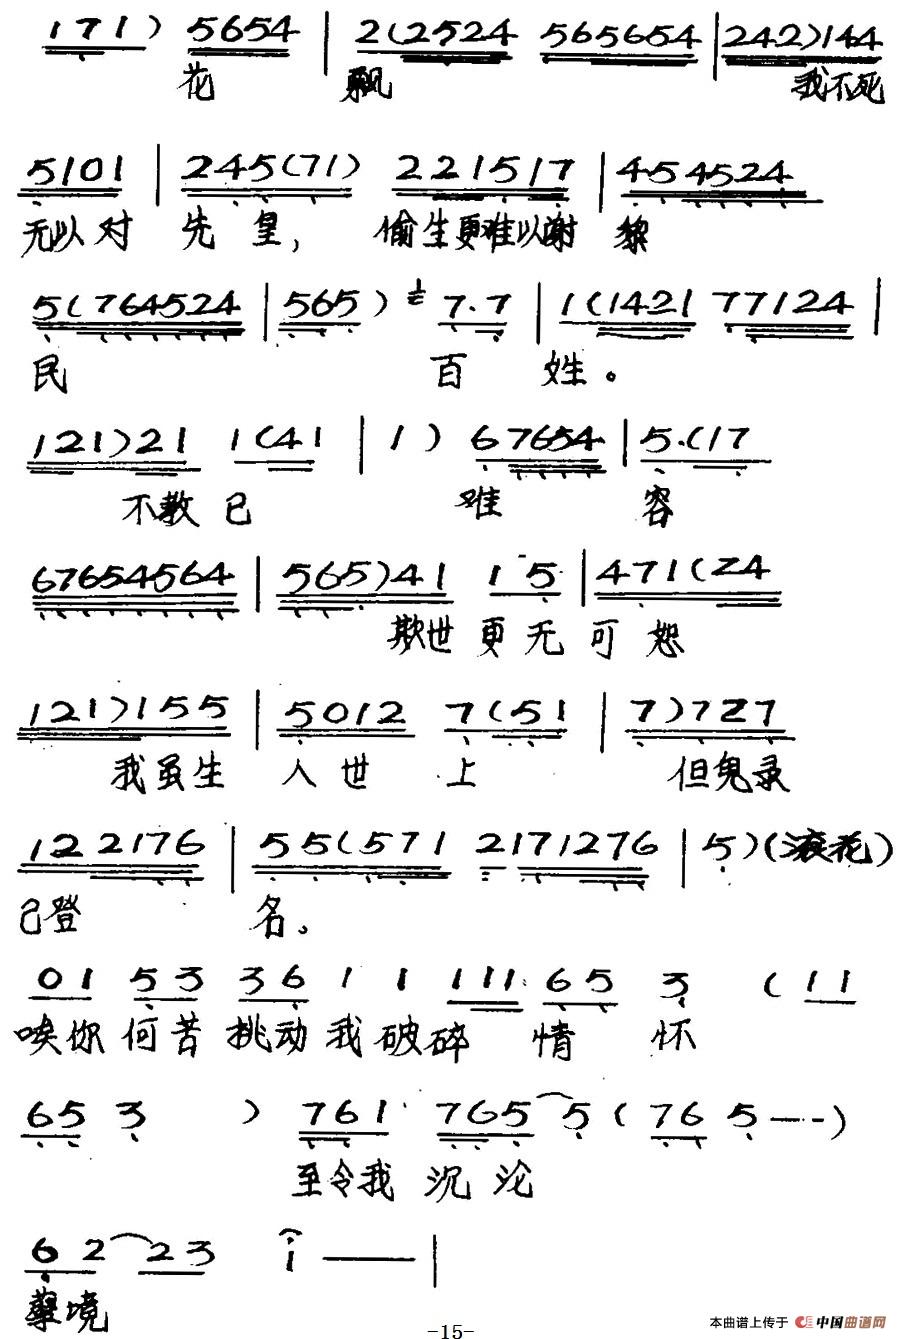 171) 5654 | 2(2524 565654 | 242)144
花 飘 我不死
5101 | 245(71) 221517 | 454524
无以对 先皇, 偷生更难以谢 黎
5(764524 | 565) 7·7 | 1(1421 77124 |
民 百 姓。
121)21 1(41 | 1) 67654 | 5·(17
不教已 难 容
67654564 | 565)41 1 5 | 471(24
欺世更无可恕
121)155 | 5012 7(51 | 7)727
我虽生 人世 上 但鬼录
122176 | 55(571 2171276 | 5)(滚花)
已登 名。
01 53 36 1 1 111 65 3 (11
唉你何苦挑动我破碎 情 怀
65 3 ) 761· 765 5 (76 5——)
至令我 沉 沦
62 23 i —— |
孽境
-15-
本曲谱上传于 中国曲谱网